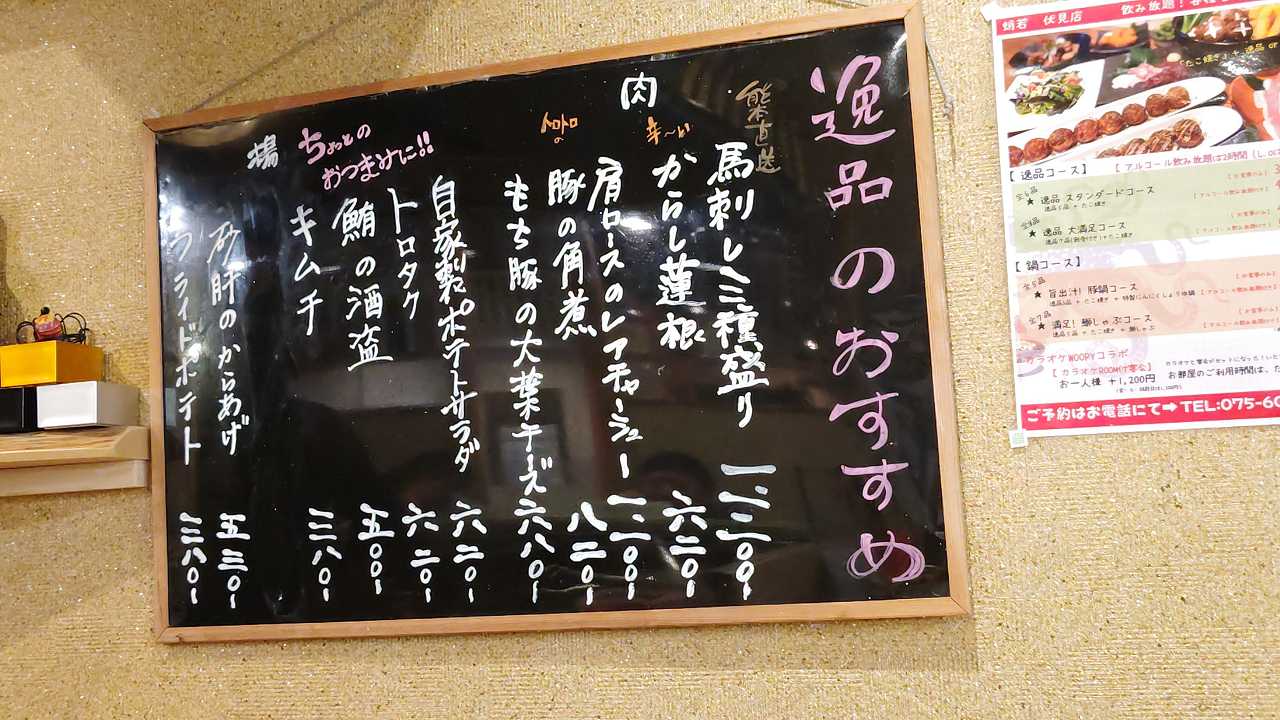 逸品のおすすめ
熊本直送
馬刺し三種盛り
辛〜い
からし蓮根 六二〇-
肉
肩ロースのレアチャーシュー
トロトロの
豚の角煮 八二〇-
もち豚の大葉チーズ 六八〇-
ちょっとの
おつまみに!!
自家製ポテトサラダ 六二〇-
トロタク 六二〇-
鮪の酒盗 五〇〇-
キムチ 三八〇-
揚
砂肝のからあげ 五三〇-
フライドポテト 三八〇-
蛸若 伏見店 飲み放題!
【逸品コース】 【アルコール飲み放題は2時間
全6品
★ 逸品 スタンダードコース
逸品5品 + たこ焼き
★ 逸品 大満足コース
【鍋コース】
全5品
★ 旨出汁! 豚鍋コース
全7品
★ 満足! 鰤しゃぶコース
カラオケWOOPYコラボ
【カラオケROOM(T零公】
お一人様 +1,200円
お部屋のご利用時間は、
ご予約はお電話にて➡TEL:075-60